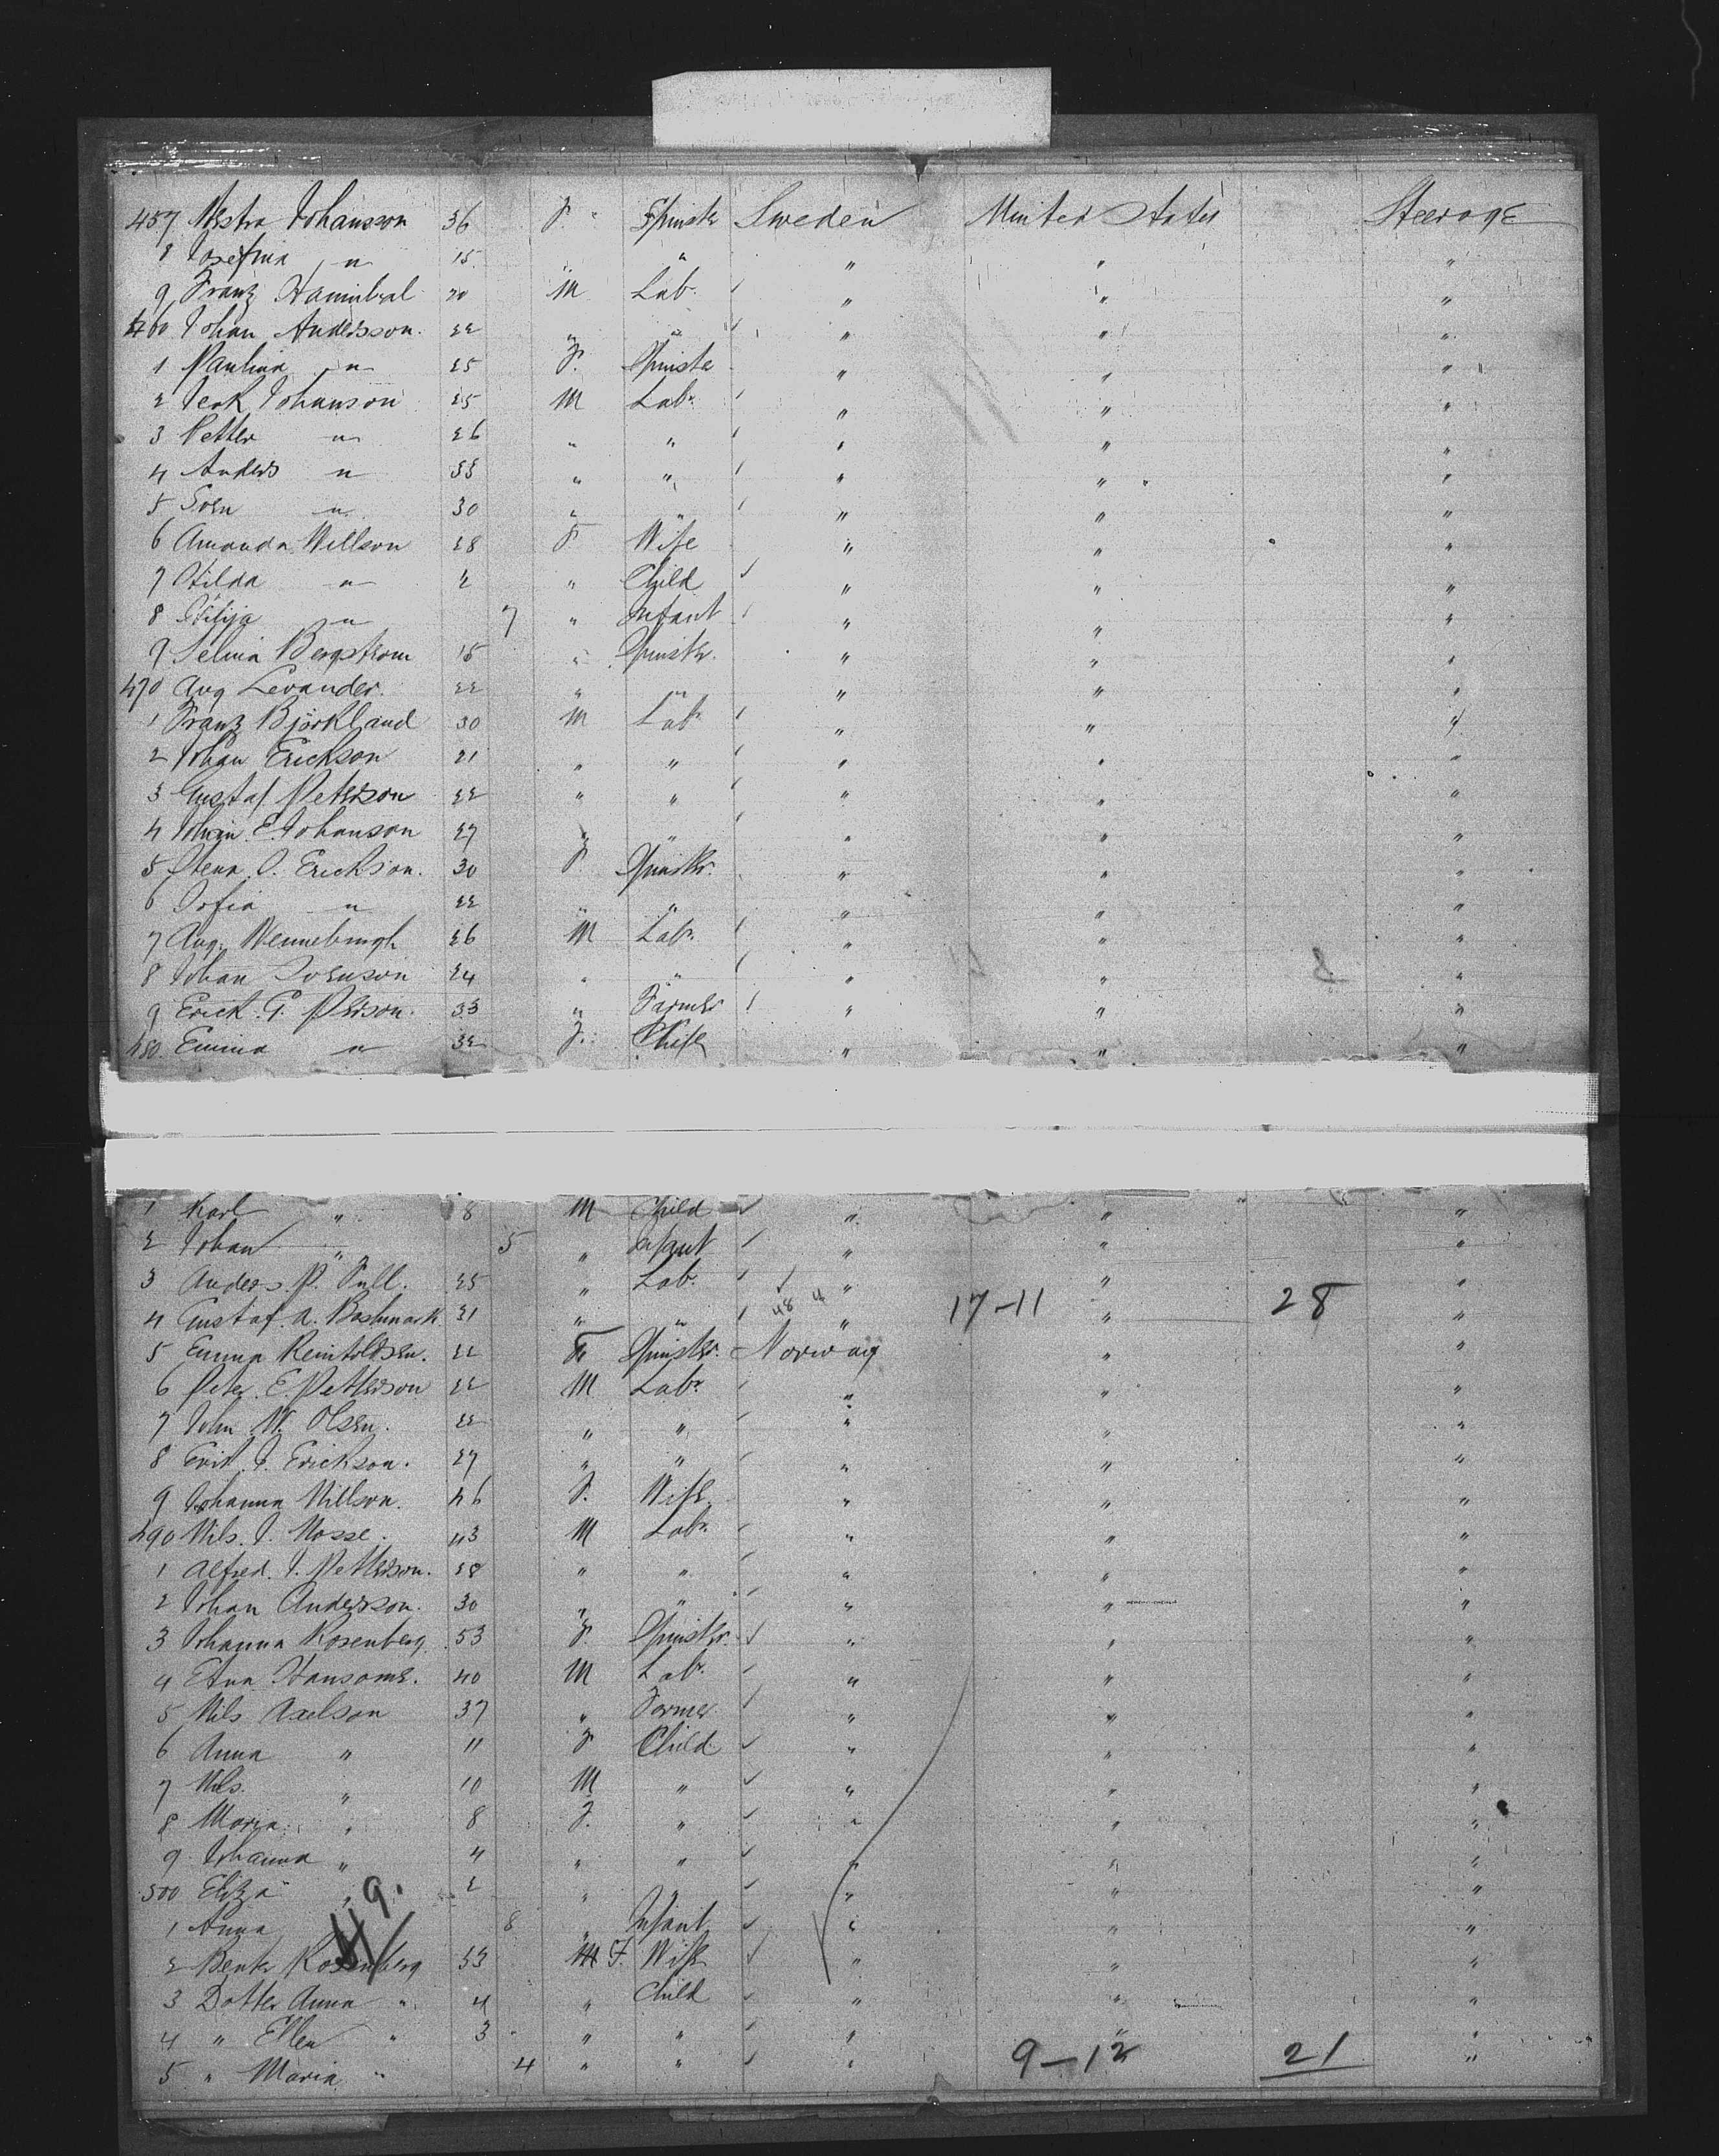 457 Johansson 36 F. Spinstr Sweden United States Steerage
8 Josefina " 15 " " " "
9 Franz Hannibal 20 M Lab. " " "
460 Johan Andersson. 22 " " " " "
1 Paulina " 25 F. Spinste " " "
2 Johanson 25 M Labr. " " "
3 Petter " 26 " " " " "
4 Anders " 33 " " " " "
5 Sven " 30 " " " " "
6 Amanda Nillson 28 F Wife " " "
7 " 2 " Child " " "
8 " 7 " Infant " " "
9 Selma Bergstrom 15 " Spinstr. " " "
470 Aug Levander. 22 " " " " "
1 Franz Björkland 30 M Labr " " "
2 Johan Erickson 21 " " " " "
3 Gustaf Peterson 22 " " " " "
4 Johan E. Johanson 27 " " " " "
5 Stena C. Erickson. 30 F Spinstr. " " "
6 Sofia " 22 " " " " "
7 Aug. 26 M Labr. " " "
8 Johan Svenson 24 " " " " "
9 Erick. G. Person. 33 " Farmer " " "
480. Emma " 32 F. Wife " " "
1 Karl " 8 M Child " " "
2 Johan " 5 " Infant " " "
3 Anders. P. 25 " Lab. " " "
4 Gustaf. A. 21 " " 48 4 " 17-11 " 28 "
5 Emma 22 F Spinster. Norway " "
6 Peter. E. Petterson 22 M Labr. " " "
7 John W. Olsen. 22 " " " " "
8 Erik. J. Erickson. 27 " " " " "
9 Johanna Nillson. 46 F. Wife. " " "
490 Nils. J. Mosse. 43 M Labr. " " "
1 Alfred. J. Petterson. 28 " " " " "
2 Johan Anderson. 30 " " " " "
3 Johanna Rosenberg 53 F. Spinstr. " " "
4 40 M Labr. " " "
5 Nils Axelson 37 " Farmer " " "
6 Anna " 11 F Child " " "
7 Nils. " 10 M " " " "
8 Maria " 8 F. " " " "
9 Johanna " 4 " " " " "
500 Eliza " 9. 2 " " " " "
1 Anna 8 " Infant " " "
2 Rosenberg 33 F. Wife " " "
3 Dotter Anna " 4 " Child " " "
4 " Ellen " 3 " " " " "
5 " Maria " 4 " " " 9-12 21 "